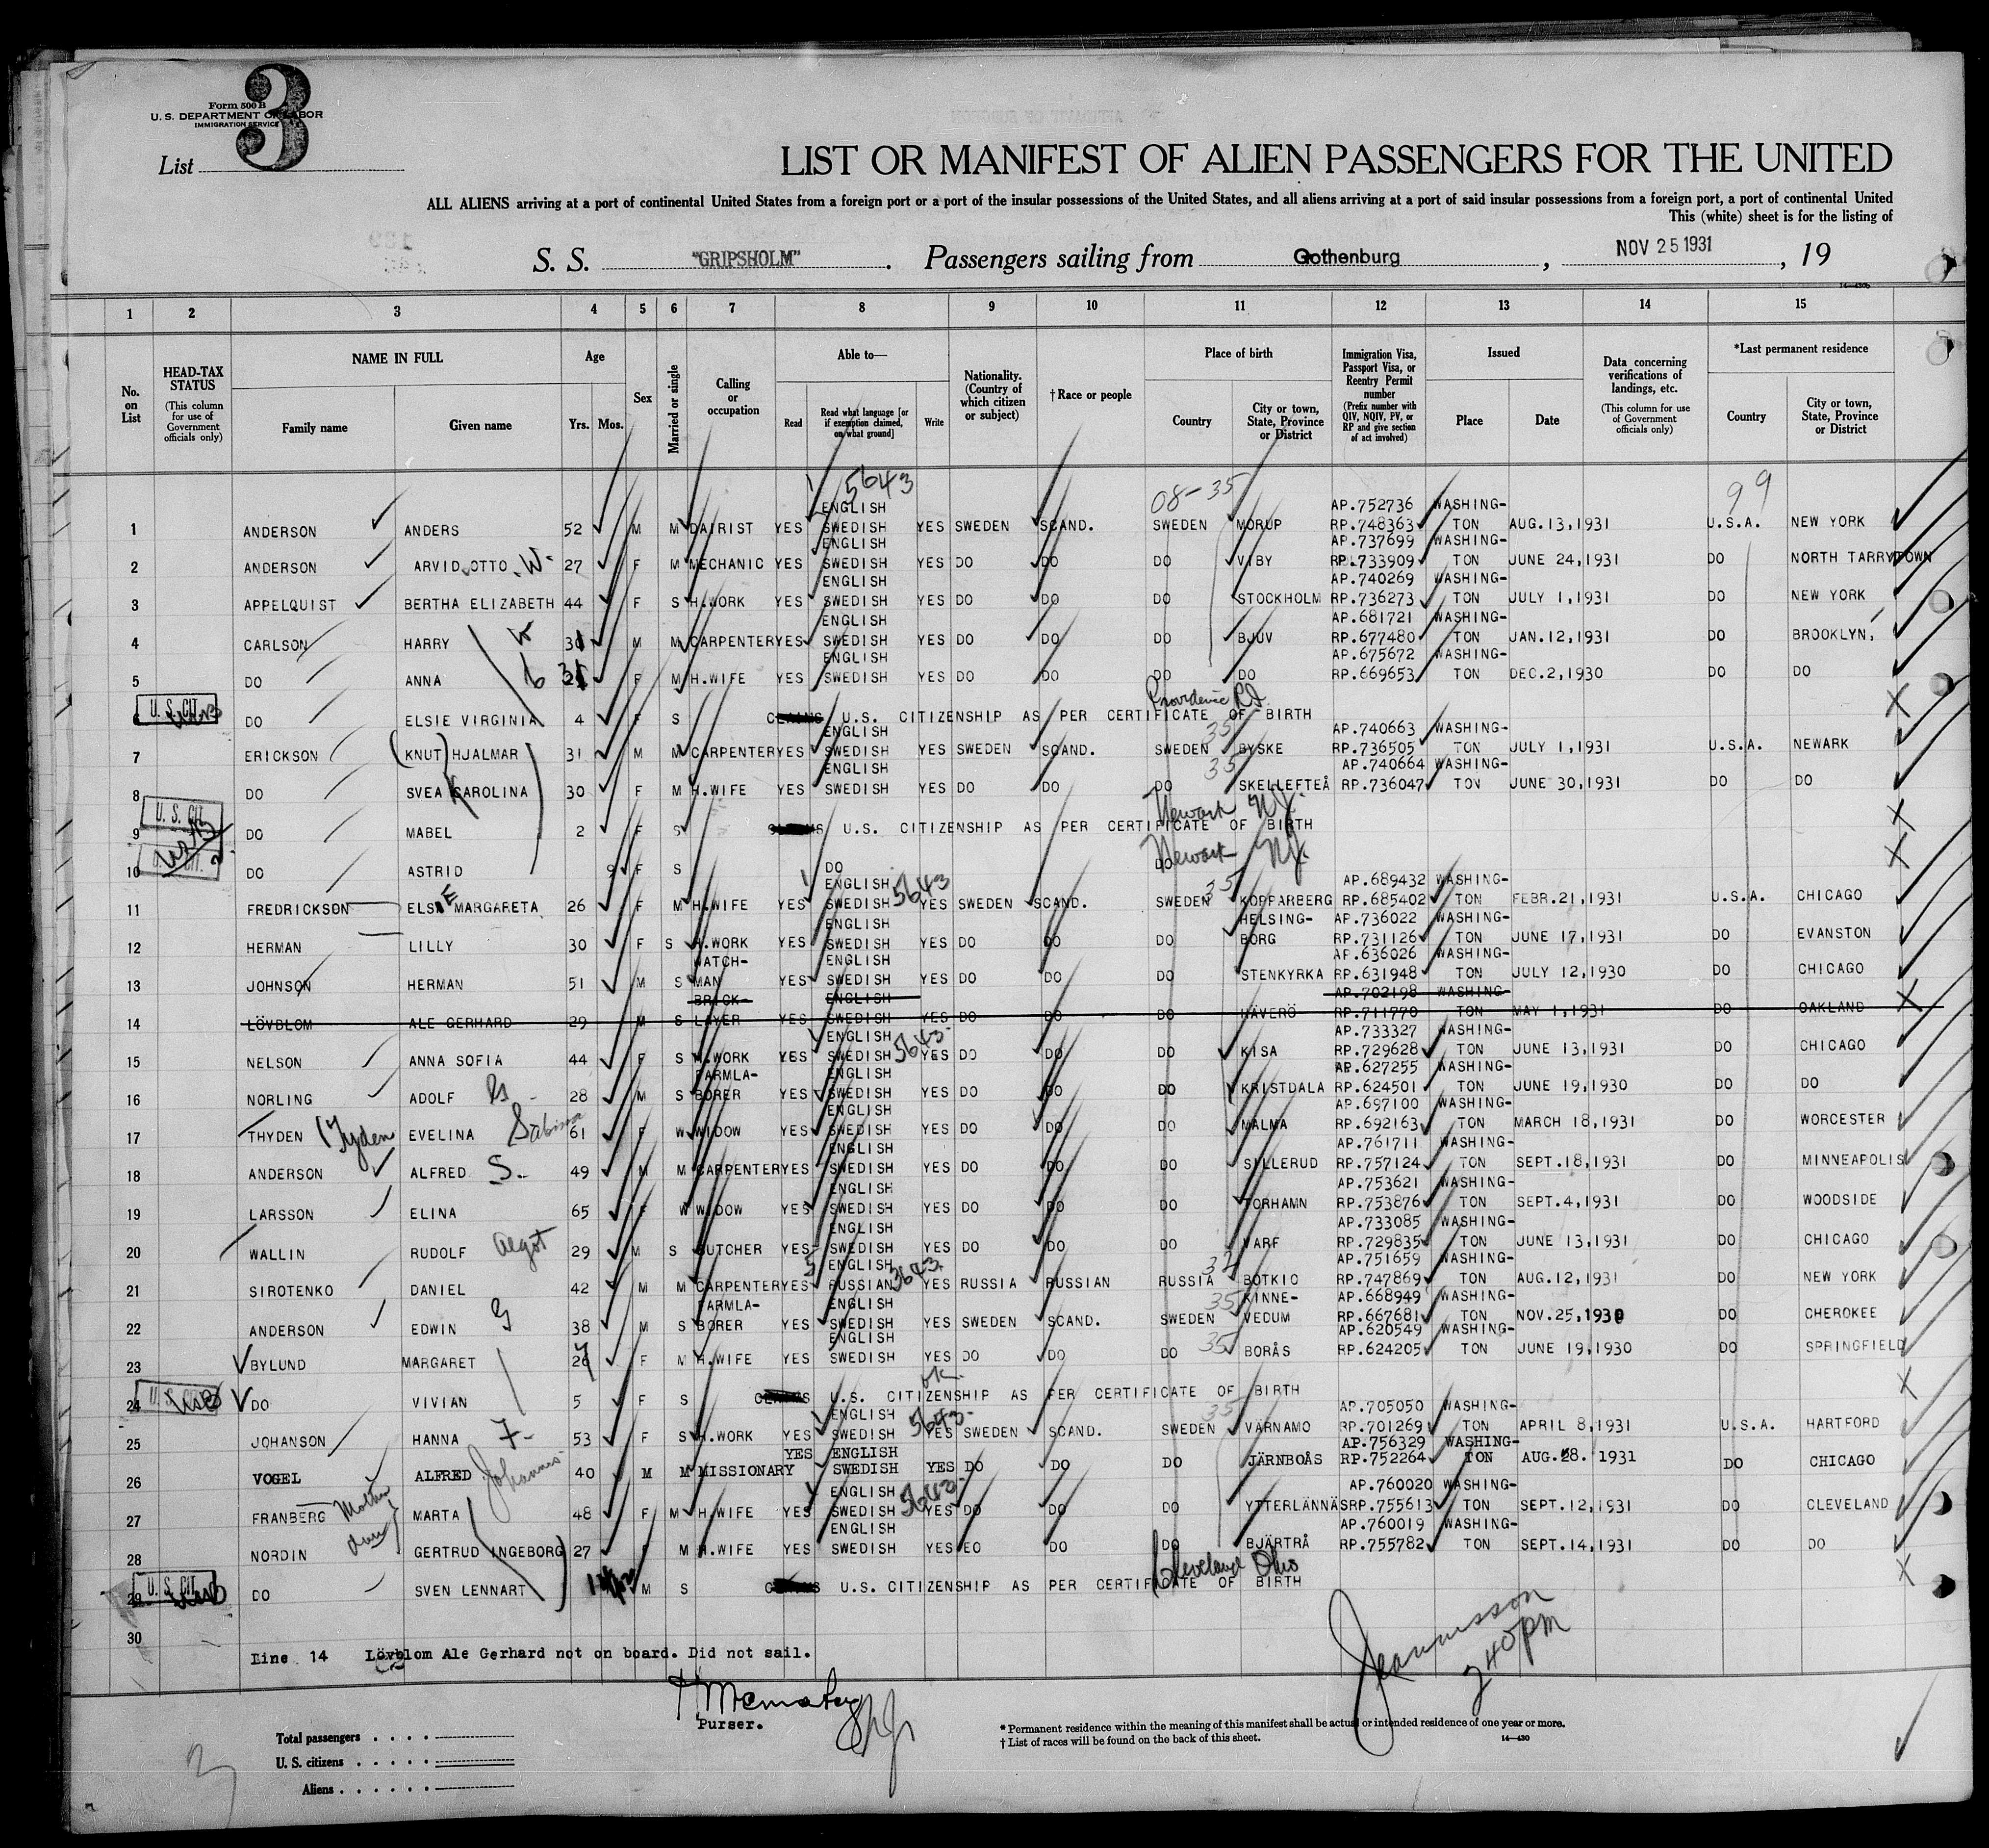 Form 500 B
U. S. DEPARTMENT OF LABOR
IMMIGRATION SERVICE
3
List
LIST OR MANIFEST OF ALIEN PASSENGERS FOR THE UNITED
ALL ALIENS arriving at a port of continental United States from a foreign port or a port of the insular possessions of the United States, and all aliens arriving at a port of said insular possessions from a foreign port, a port of continental United
This (white) sheet is for the listing of
S. S. "GRIPSHOLM". Passengers sailing from Gothenburg, NOV 25 1931, 19
14-430b
1 2 3 4 5 6 7 8 9 10 11 12 13 14 15
No. on List
HEAD-TAX STATUS (This column for use of Government officials only)
NAME IN FULL Family name Given name
Age Yrs. Mos.
Sex
Married or single
Calling or occupation
Able to— Read Read what language [or if exemption claimed, on what ground] Write
Nationality. (Country of which citizen or subject)
† Race or people
Place of birth Country City or town, State, Province or District
Immigration Visa, Passport Visa, or Reentry Permit number (Prefix number with QIV, NQIV, PV, or RP and give section of act involved)
Issued Place Date
Data concerning verifications of landings, etc. (This column for use of Government officials only)
*Last permanent residence Country City or town, State, Province or District
5643 08-35 99
ENGLISH AP.752736 WASHING-
1 ANDERSON ANDERS 52 M M DAIRIST YES SWEDISH YES SWEDEN SCAND. SWEDEN MORUP RP.748363 TON AUG.13,1931 U.S.A. NEW YORK
ENGLISH AP.737699 WASHING-
2 ANDERSON ARVID OTTO W- 27 F M MECHANIC YES SWEDISH YES DO DO DO VIBY RP.733909 TON JUNE 24,1931 DO NORTH TARRYTOWN
ENGLISH AP.740269 WASHING-
3 APPELQUIST BERTHA ELIZABETH 44 F S H.WORK YES SWEDISH YES DO DO DO STOCKHOLM RP.736273 TON JULY 1,1931 DO NEW YORK
ENGLISH AP.681721 WASHING-
4 CARLSON HARRY M M CARPENTER YES SWEDISH YES DO DO DO BJUV RP.677480 TON JAN.12,1931 DO BROOKLYN,
ENGLISH AP.675672 WASHING-
5 DO ANNA F M H.WIFE YES SWEDISH YES DO DO DO DO RP.669653 TON DEC.2,1930 DO DO
Providence R.I.
U. S. CIT. DO ELSIE VIRGINIA 4 F S U.S. CITIZENSHIP AS PER CERTIFICATE OF BIRTH
ENGLISH 35 AP.740663 WASHING-
7 ERICKSON (KNUT) HJALMAR 31 M M CARPENTER YES SWEDISH YES SWEDEN SCAND. SWEDEN BYSKE RP.736505 TON JULY 1,1931 U.S.A. NEWARK
ENGLISH 35 AP.740664 WASHING-
8 DO SVEA KAROLINA 30 F M H.WIFE YES SWEDISH YES DO DO DO SKELLEFTEÅ RP.736047 TON JUNE 30,1931 DO DO
U. S. CIT Newark N.J.
9 DO MABEL 2 F S U.S. CITIZENSHIP AS PER CERTIFICATE OF BIRTH
Newark N.J.
10 DO ASTRID 9 F S DO DO
ENGLISH 5643 35 AP.689432 WASHING-
11 FREDRICKSON ELSIE MARGARETA 26 F M H.WIFE YES SWEDISH YES SWEDEN SCAND. SWEDEN KOPPARBERG RP.685402 TON FEBR.21,1931 U.S.A. CHICAGO
ENGLISH HELSING- AP.736022 WASHING-
12 HERMAN LILLY 30 F S H.WORK YES SWEDISH YES DO DO DO BORG RP.731126 TON JUNE 17,1931 DO EVANSTON
WATCH- ENGLISH AP.636026 WASHING-
13 JOHNSON HERMAN 51 M S MAN YES SWEDISH YES DO DO DO STENKYRKA RP.631948 TON JULY 12,1930 DO CHICAGO
BRICK- ENGLISH AP.702198 WASHING-
14 LÖVBLOM ALE GERHARD 29 M S LAYER YES SWEDISH YES DO DO DO HÄVERÖ RP.711770 TON MAY 1,1931 DO OAKLAND
ENGLISH 5643 AP.733327 WASHING-
15 NELSON ANNA SOFIA 44 F S H.WORK YES SWEDISH YES DO DO DO KISA RP.729628 TON JUNE 13,1931 DO CHICAGO
FARMLA- ENGLISH AP.627255 WASHING-
16 NORLING ADOLF G 28 M S BORER YES SWEDISH YES DO DO DO KRISTDALA RP.624501 TON JUNE 19,1930 DO DO
ENGLISH AP.697100 WASHING-
17 THYDEN (Tyden EVELINA Sabina 61 F W WIDOW YES SWEDISH YES DO DO DO MALMA RP.692163 TON MARCH 18,1931 DO WORCESTER
ENGLISH AP.761711 WASHING-
18 ANDERSON ALFRED S- 49 M M CARPENTER YES SWEDISH YES DO DO DO SILLERUD RP.757124 TON SEPT.18,1931 DO MINNEAPOLIS
ENGLISH AP.753621 WASHING-
19 LARSSON ELINA 65 F W WIDOW YES SWEDISH YES DO DO DO TORHAMN RP.753876 TON SEPT.4,1931 DO WOODSIDE
ENGLISH AP.733085 WASHING-
20 WALLIN RUDOLF Algot 29 M S BUTCHER YES SWEDISH YES DO DO DO VARF RP.729835 TON JUNE 13,1931 DO CHICAGO
ENGLISH AP.751659 WASHING-
21 SIROTENKO DANIEL 42 M M CARPENTER YES RUSSIAN YES RUSSIA RUSSIAN RUSSIA BOTKIC RP.747869 TON AUG.12,1931 DO NEW YORK
FARMLA- ENGLISH 35 KINNE- AP.668949 WASHING-
22 ANDERSON EDWIN G 38 M S BORER YES SWEDISH YES SWEDEN SCAND. SWEDEN VEDUM RP.667681 TON NOV.25,1930 DO CHEROKEE
ENGLISH 35 AP.620549 WASHING-
23 BYLUND MARGARET F M H.WIFE YES SWEDISH YES DO DO DO BORÅS RP.624205 TON JUNE 19,1930 DO SPRINGFIELD
ok
24 DO VIVIAN 5 F S U.S. CITIZENSHIP AS PER CERTIFICATE OF BIRTH
ENGLISH 5643 35 AP.705050 WASHING-
25 JOHANSON HANNA F- 53 F S H.WORK YES SWEDISH YES SWEDEN SCAND. SWEDEN VÄRNAMO RP.701269 TON APRIL 8,1931 U.S.A. HARTFORD
YES ENGLISH AP.756329 WASHING-
26 VOGEL ALFRED Johannes 40 M M MISSIONARY SWEDISH YES DO DO DO JÄRNBOÅS RP.752264 TON AUG.28. 1931 DO CHICAGO
ENGLISH 5643 AP.760020 WASHING-
27 FRANBERG Mother MARTA 48 F M H.WIFE YES SWEDISH YES DO DO DO YTTERLÄNNÄS RP.755613 TON SEPT.12,1931 DO CLEVELAND
ENGLISH AP.760019 WASHING-
28 NORDIN GERTRUD INGEBORG 27 F M H.WIFE YES SWEDISH YES EO DO DO BJÄRTRÅ RP.755782 TON SEPT.14,1931 DO DO
Cleveland Ohio
29 U. S. CIT. DO SVEN LENNART M S U.S. CITIZENSHIP AS PER CERTIFICATE OF BIRTH
30
Line 14 Lövblom Ale Gerhard not on board. Did not sail.
240 PM
Purser.
Total passengers
U. S. citizens
Aliens
* Permanent residence within the meaning of this manifest shall be actual or intended residence of one year or more.
† List of races will be found on the back of this sheet.
14-430